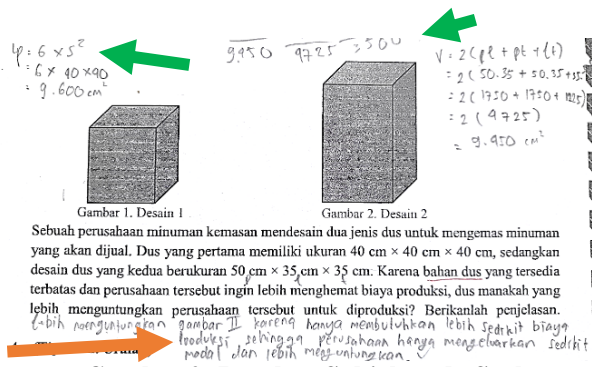 Lp = 6 × s²
= 6 × 40 × 40
= 9.600 cm²
9.950 4725 3500
V = 2 (pl + pt + lt)
= 2 (50.35 + 50.35 + 35
= 2 (1750 + 1750 + 1225)
= 2 (4725)
= 9.450 cm²
Gambar 1. Desain 1 Gambar 2. Desain 2
Sebuah perusahaan minuman kemasan mendesain dua jenis dus untuk mengemas minuman
yang akan dijual. Dus yang pertama memiliki ukuran 40 cm × 40 cm × 40 cm, sedangkan
desain dus yang kedua berukuran 50 cm × 35 cm × 35 cm. Karena bahan dus yang tersedia
terbatas dan perusahaan tersebut ingin lebih menghemat biaya produksi, dus manakah yang
lebih menguntungkan perusahaan tersebut untuk diproduksi? Berikanlah penjelasan.
Lebih menguntungkan gambar II karena hanya membutuhkan lebih sedikit biaya
produksi sehingga perusahaan hanya mengeluarkan sedikit
modal dan lebih menguntungkan.